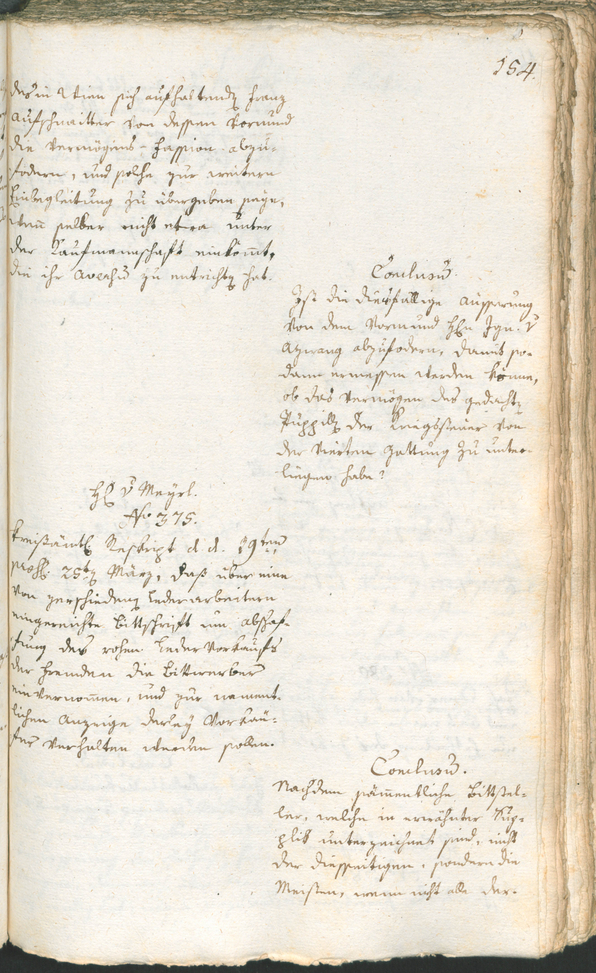 154.
des in Wien sich aufhaltend Franz
Aufschnaitter von dessen Vormund
die Vermögens-Fassion abzu-
fodern, und solche zur weitern
Einbegleitung zu übergeben seye,
wenn selber nicht etwa unter
der Kaufmannschaft einkomt,
die ihr Aversum zu entricht hat.
Conclusum.
Ist die diesfällige Äusserung
von dem Vormund Hrn Ign. v
Atzwang abzufodern, damit so-
dann ermessen werden könne,
ob das Vermögen des gedacht
Puppill der Kriegssteuer von
der vierten Gattung zu unter-
liegen habe?
H v Meyrl.
Nro 375.
Kreisämtl Reskript d. d. 19ten
praes. 25t März, daß über eine
von verschieden Lederarbeitern
eingereichte Bittschrift um Abschaf-
fung des rohen Leder Verkaufs
der Fremden die Bittwerber
einvernommen, und zur nament-
lichen Anzeige derley Verkäu-
fer verhalten werden sollen.
Conclusum.
Nachdem sämentliche Bittstel-
ler, welche in erwähnter Sup-
plik unterzeichnet sind, nicht
der diesseitigen, sondern die
Meisten, wenn nicht alle der-